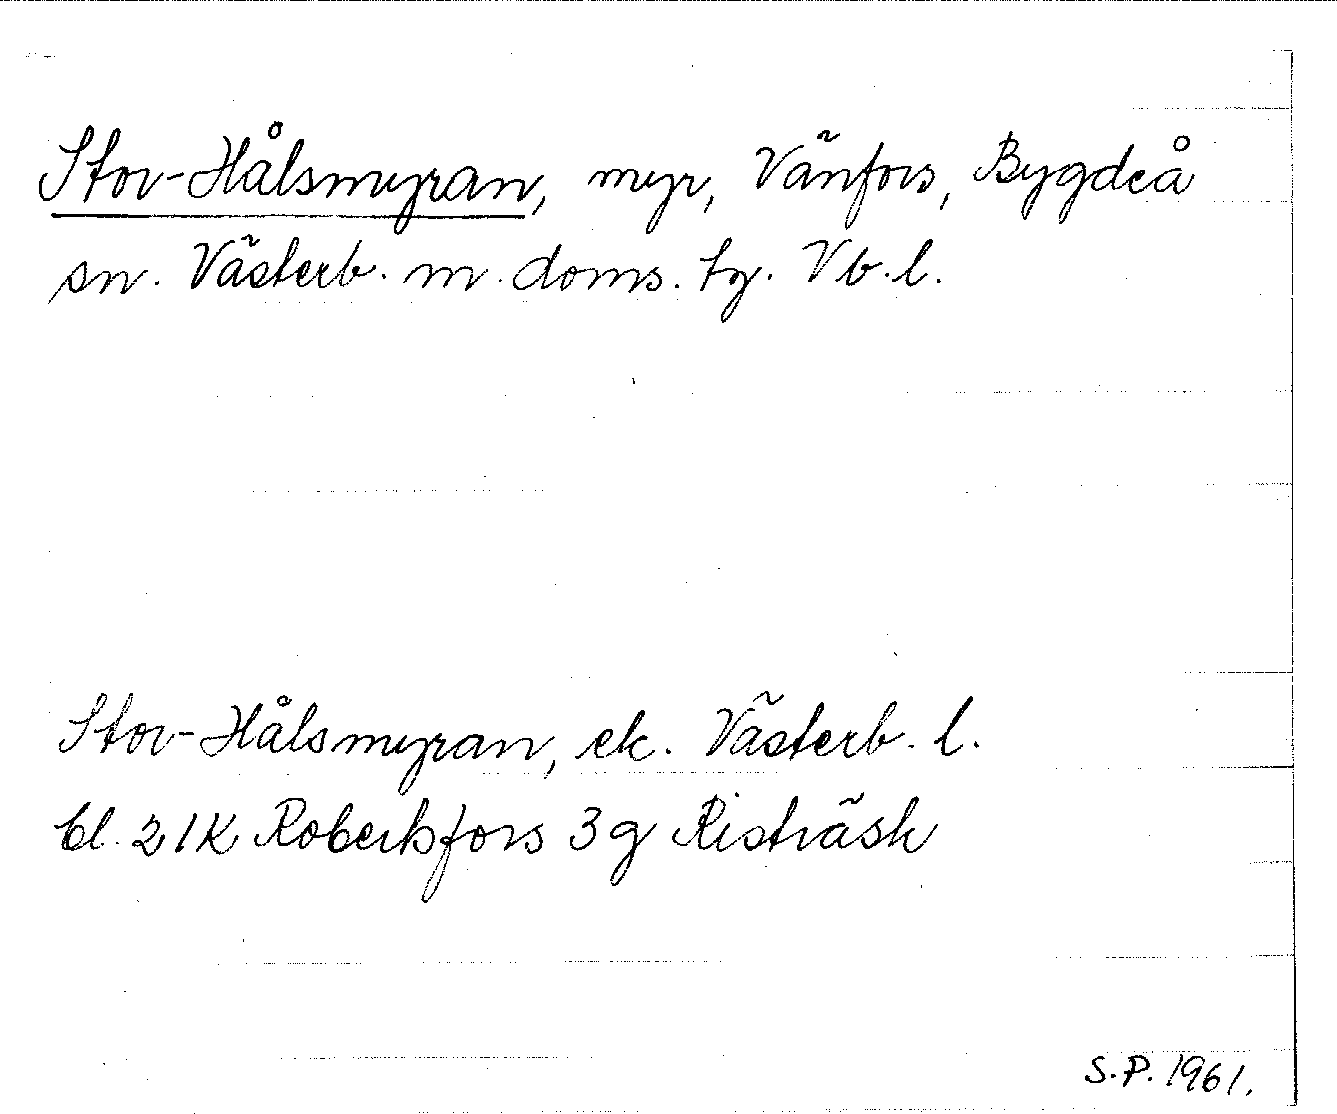 Stor-Hålsmyran, myr, Vänfors, Bygdeå
sn. Västerb. m. doms. tg. Vb. l.
Stor-Hålsmyran, ek. Västerb. l.
bl. 21K Robertsfors 3g Risträsk
S.P. 1961.